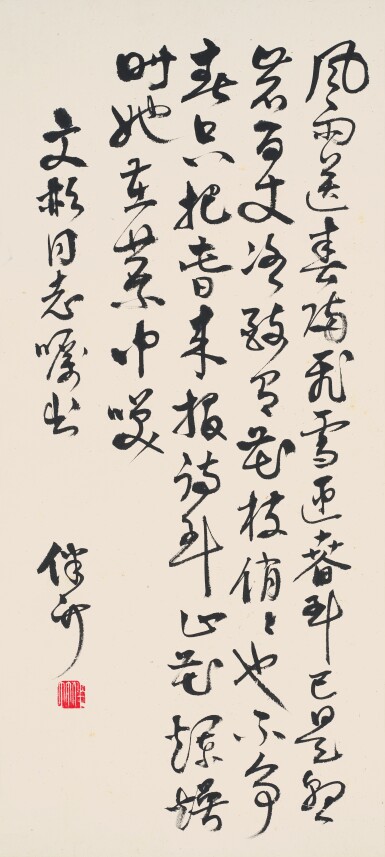 風雨送春歸飛雪迎春到已是懸
崖百丈冰猶有花枝俏〻也不争
春只把春来报待到山花爛熳
時她在叢中咲
文彬同志嘱书